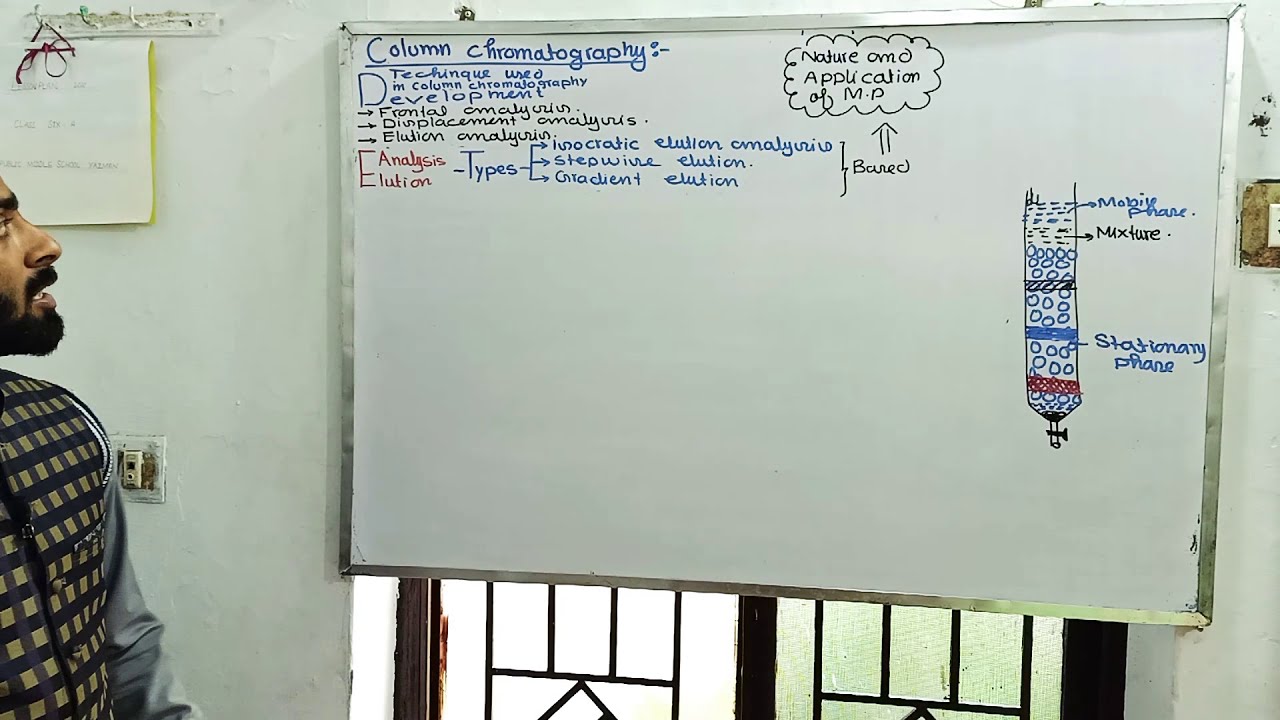 LESSON PLAN
CLASS SIX-A
PUBLIC MIDDLE SCHOOL
Column chromatography:-
Techinque used
in column chromatography
Development
→ Frontal analysis.
→ Displacement analysis.
→ Elution analysis.
Elution Analysis - Types
→ Isocratic elution analysis
→ Stepwise elution.
→ Gradient elution
Based
Nature and
Application
of M.P
Mobile phase.
Mixture.
Stationary
phase